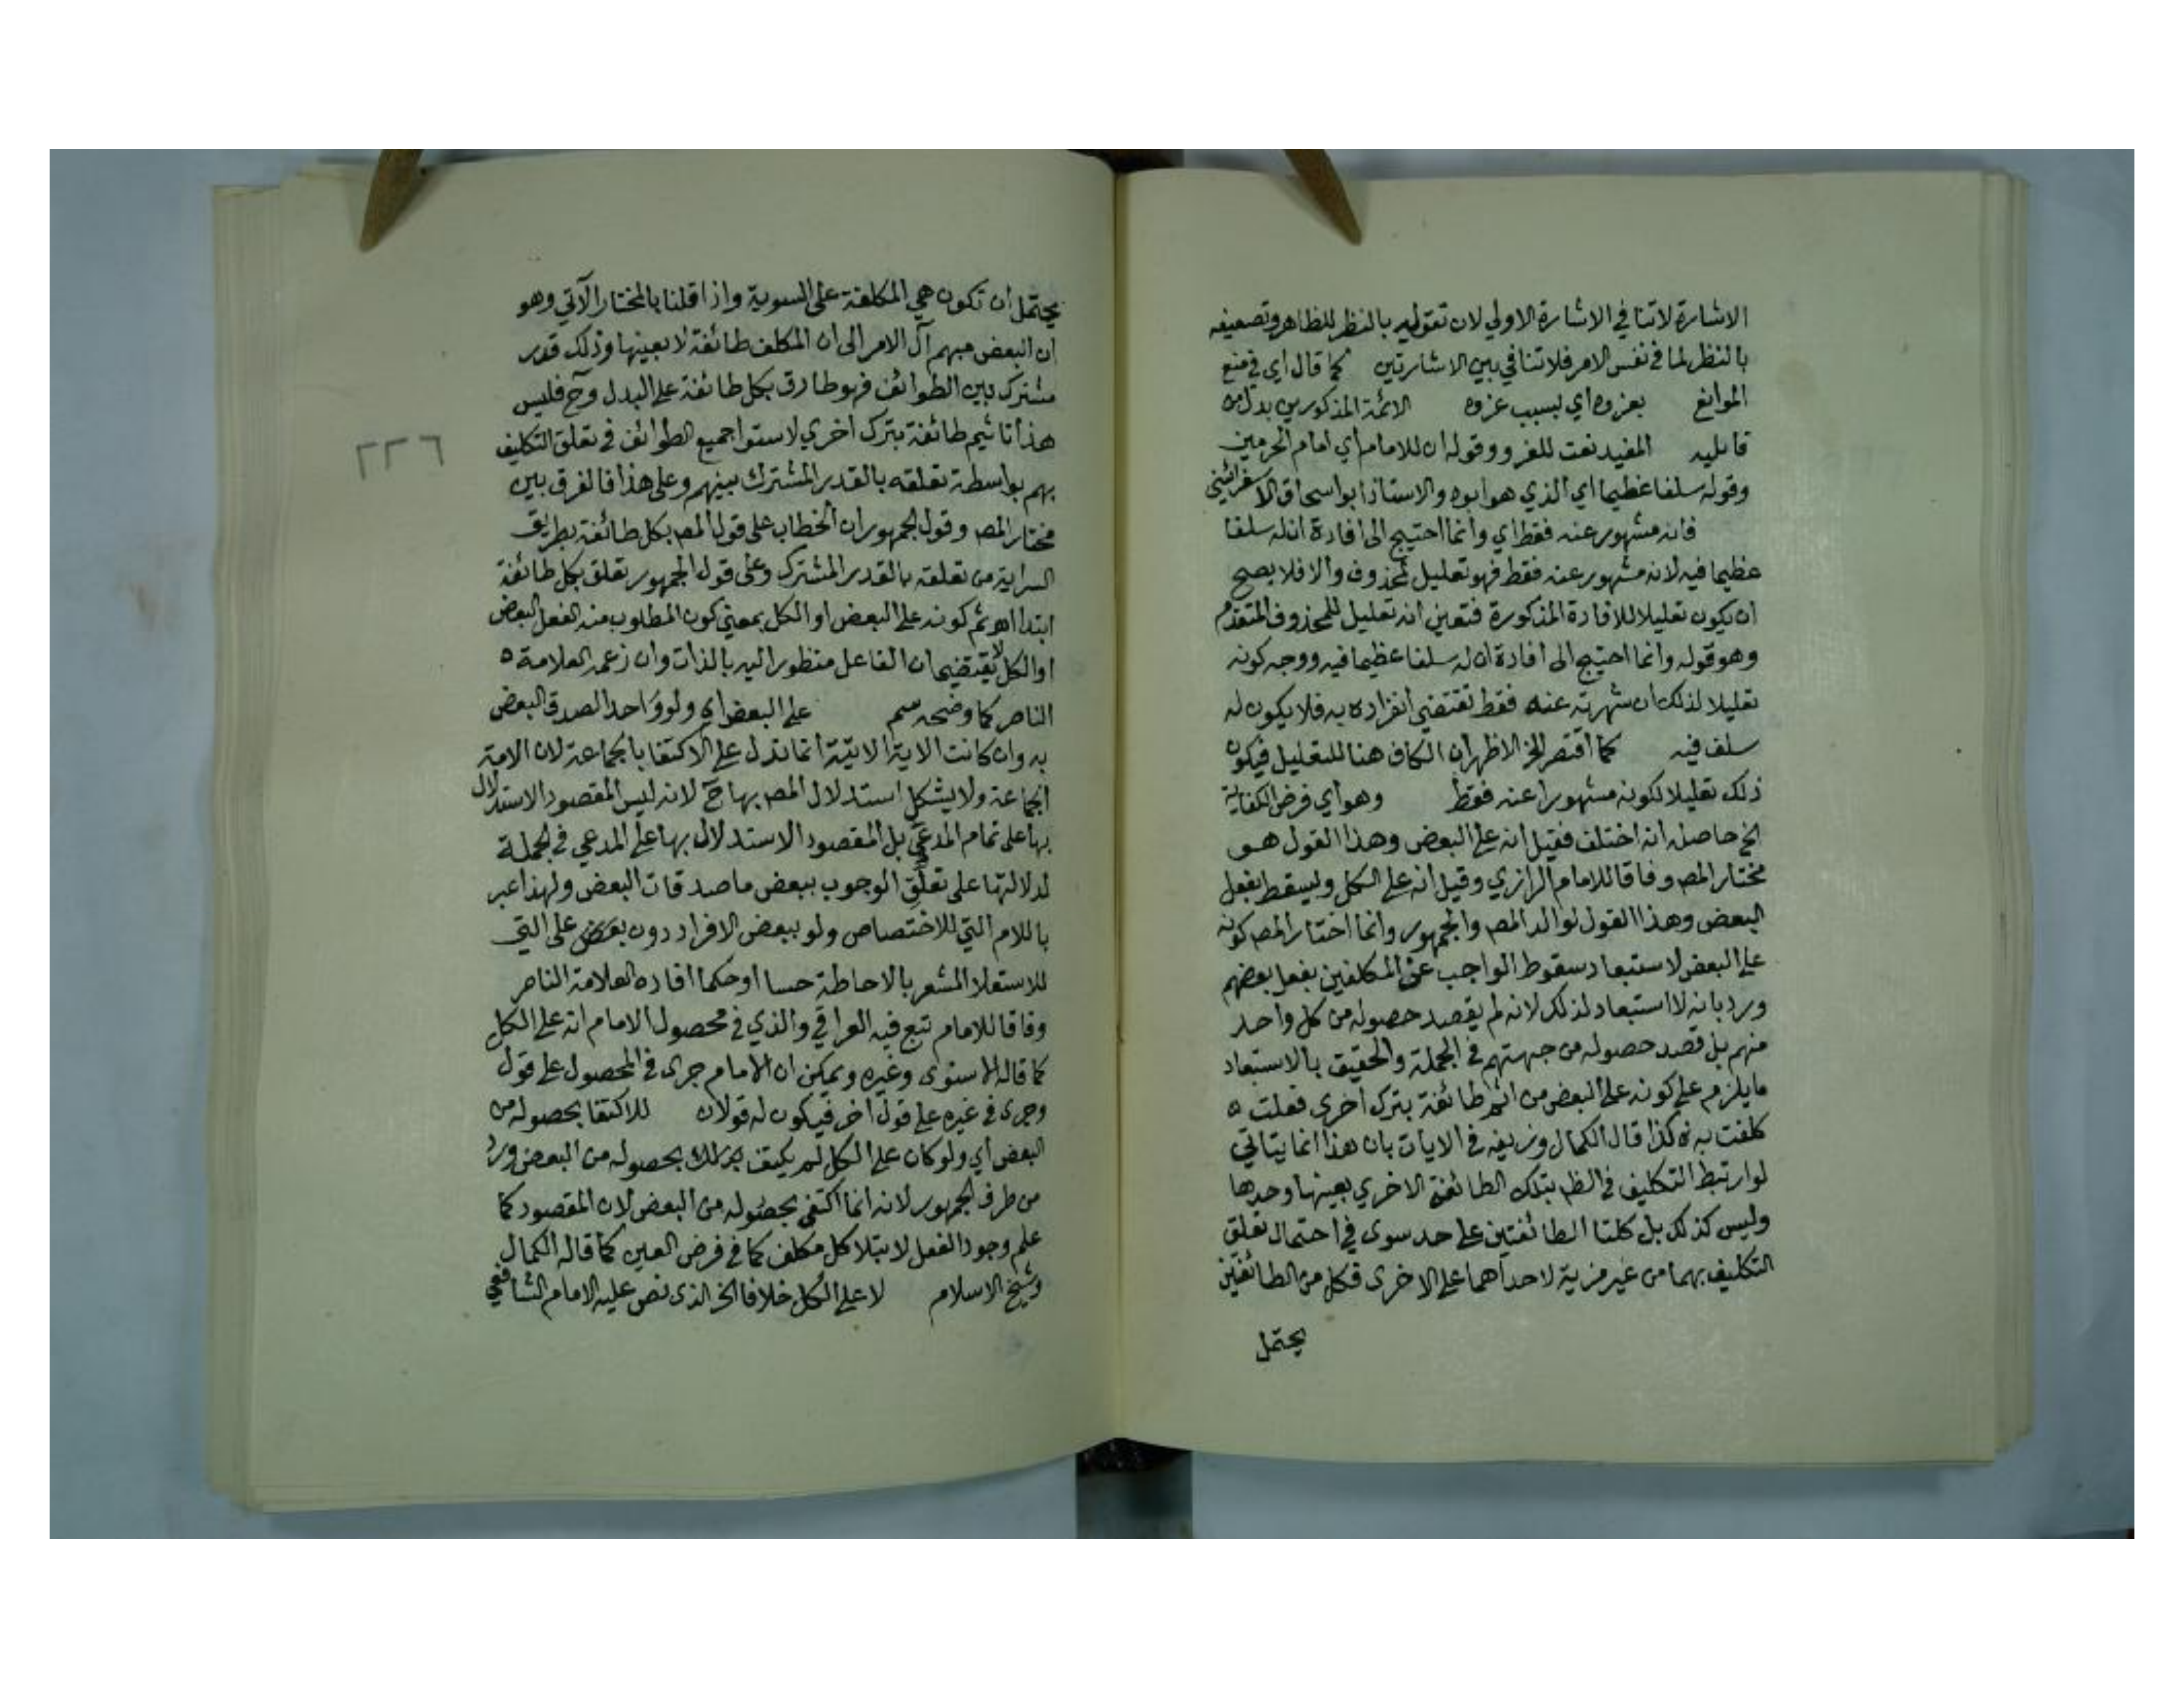 الاشارة لا تنافي الاشارة الاولي لان تعقوله بالنظر للظاهر وتضعيفه
بالنظر لما في نفس الامر فلا تنافي بين الاشارتين كما قال اي في منع
الموانع بعزوه اي بسبب عزوه الائمة المذكورين بدل من
قائليه المفيد نعت للغرو وقوله ان للامام اي امام الحرمين
وقوله سلفا عظيما اي الذي هو ابوه والاستاذ ابو اسحاق الاسفرائيني
فانه مشهور عنه فقط اي وانما احتيج الى افادة ان له سلفا
عظيما فيه لانه مشهور عنه فقط فهو تعليل لمحذوف والا فلا يصح
ان يكون تعليلا للافادة المذكورة فتعين انه تعليل للمحذوف المتقدم
وهو قوله وانما احتيج الى افادة ان له سلفا عظيما فيه ووجه كونه
تعليلا لذلك ان شهرته عنه فقط تقتضي انفراده به فلا يكون له
سلف فيه كما اقتصر الخ الاظهر ان الكاف هنا للتعليل فيكون
ذلك تعليلا لكونه مشهورا عنه فقط وهو اي فرض الكفاية
الخ حاصله انه اختلف فقيل انه على البعض وهذا القول هو
مختار المص وفاقا للامام الرازي وقيل انه على الكل ويسقط بفعل
البعض وهذا القول لوالد المص والجمهور وانما اختار المص كونه
على البعض لاستبعاد سقوط الواجب عن المكلفين بفعل بعضهم
ورد بانه لا استبعاد لذلك لانه لم يقصد حصوله من كل واحد
منهم بل قصد حصوله من جهتهم في الجملة والحقيق بالاستبعاد
ما يلزم على كونه على البعض من اثم طائفة بترك اخرى فعلت ه
كلفت به كذا قال الكمال وزيفه في الايات بان هذا انما يتاتي
لو ارتبط التكليف في الظ بتلك الطائفة الاخري بعينها وحدها
وليس كذلك بل كلتا الطائفتين على حد سوى في احتمال تعلق
التكليف بهما من غير مزية لاحداهما على الاخرى فكل من الطائفتين
يحتمل
يحتمل ان تكون هي المكلفة على السوية واذا قلنا بالمختار الآتي وهو
ان البعض مبهم آل الامر الى ان المكلف طائفة لا بعينها وذلك قدر
مشترك بين الطوائف فهو طارق بكل طائفة على البدل وح فليس
هذا تاثيم طائفة بترك اخري لاستوا جميع الطوائف في تعلق التكليف
بهم بواسطة تعلقه بالقدر المشترك بينهم وعلى هذا فالفرق بين
مختار المص وقول الجمهور ان الخطاب على قول المص بكل طائفة بطريق
السراية من تعلقه بالقدر المشترك وعلى قول الجمهور تعلق بكل طائفة
ابتدا اهو ثم كونه على البعض او الكل بمعني كون المطلوب منه الفعل البعض
او الكل لا يقتضي ان الفاعل منظورا اليه بالذات وان زعمه العلامة ه
الناصر كما وضحه سم على البعض اي ولو واحد الصدق البعض
به وان كانت الاية الاتية انما تدل على الاكتفا بالجماعة لان الامة
الجماعة ولا يشكل استدلال المص بها ح لانه ليس المقصود الاستدلال
بها على تمام المدعي بل المقصود الاستدلال بها على المدعي في الجملة
لدلالتها على تعلق الوجوب ببعض ماصدقات البعض ولهذا عبر
باللام التي للاختصاص ولو ببعض الافراد دون بعض على التي
للاستعلا المشعر بالاحاطة حسا او حكما افاده العلامة الناصر
وفاقا للامام تبع فيه العراقي والذي في محصول الامام انه على الكل
كما قاله الاسنوى وغيره ويمكن ان الامام جرى في المحصول على قول
وجرى في غيره على قول اخر فيكون له قولان للاكتفا بحصوله من
البعض اي ولو كان على الكل لم يكتف بذلك بحصوله من البعض ورد
من طرف الجمهور لانه انما اكتفى بحصوله من البعض لان المقصود كما
علم وجود الفعل لا ابتلا كل مكلف كما في فرض العين كما قاله الكمال
وشيخ الاسلام لا على الكل خلافا الخ الذى نص عليه الامام الشافعي
٢٢٦